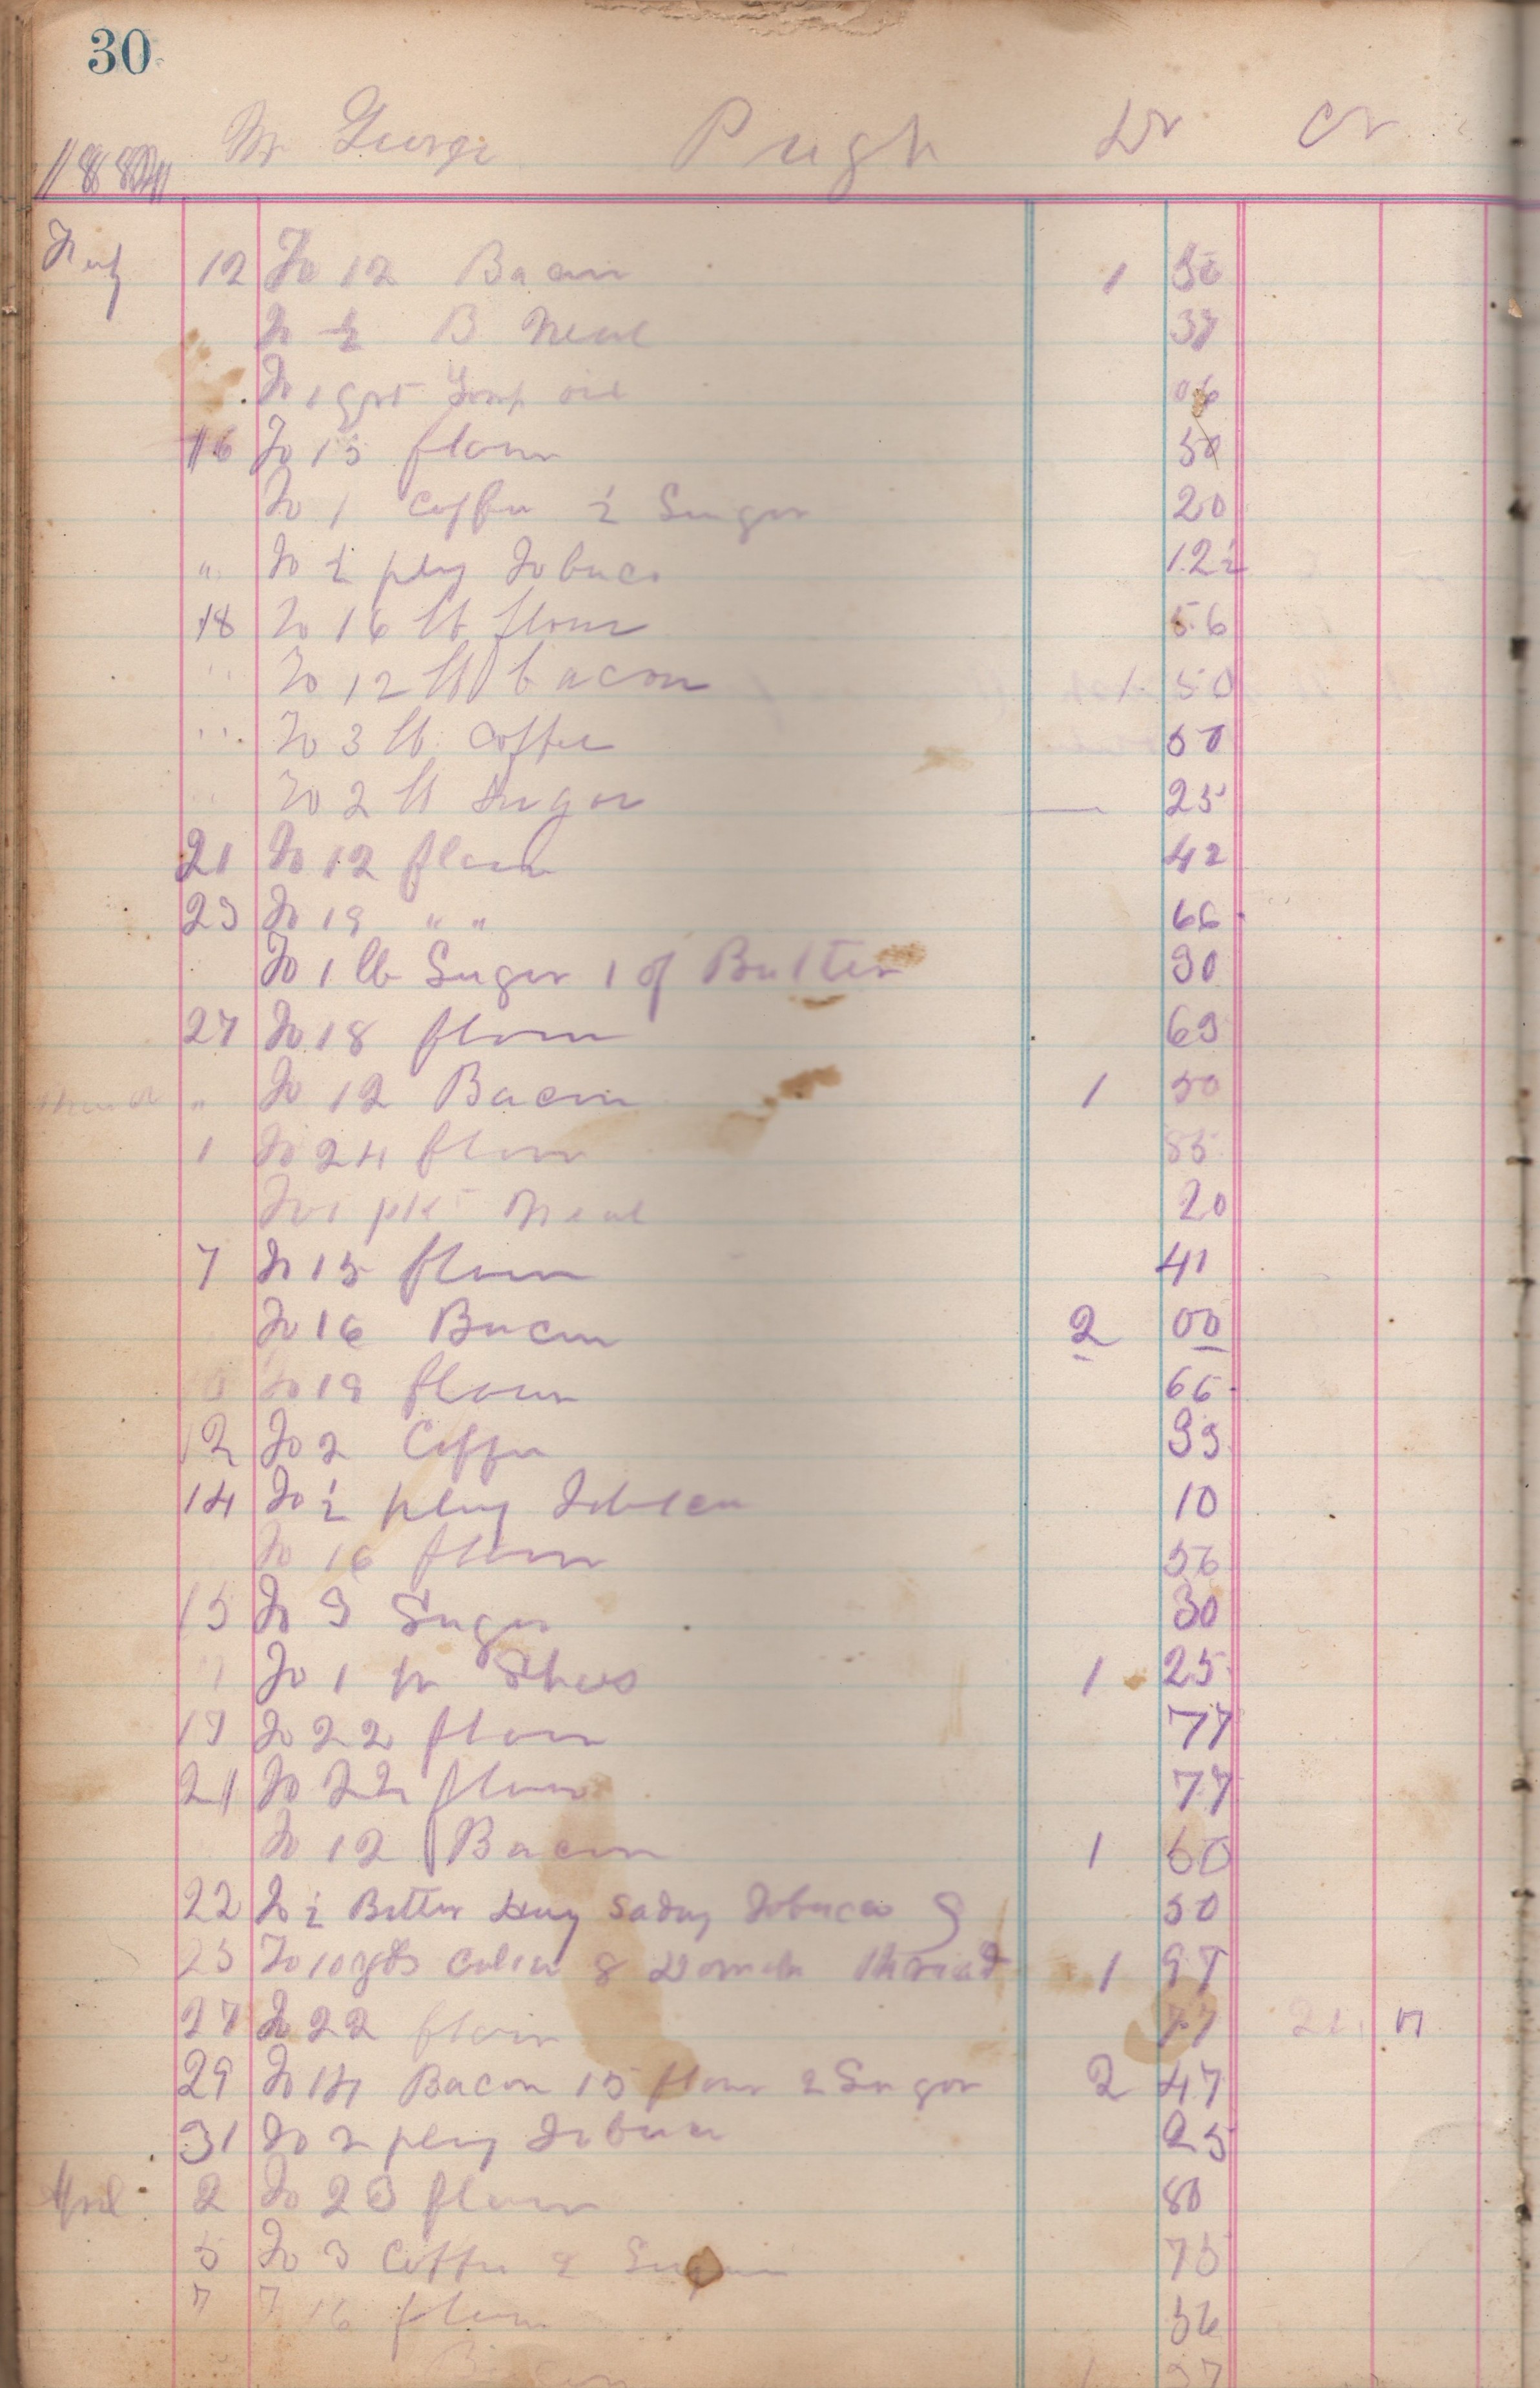 30
Mr George Pugh Dr Cr
12 To 12 Bacon 1 50
To ½ B Meal 37
To 1 qrt Lamp oil 06
16 To 15 flour 50
To 1 Coffee ½ Sugar 20
" To ½ plug Tobaco 12½
18 To 16 lb flour 56
" To 12 lb bacon 1 50
" To 3 lb Coffee 50
To 2 lb Sugar 25
21 To 12 flour 42
23 To 19 " " 66
To 1 lb Suger 1 of Butter 30
27 To 18 flour 63
" To 12 Bacon 1 50
1 To 24 flour 85
To 1 pk Meal 20
7 To 15 flour 41
To 16 Bacon 2 00
To 19 flour 66
12 To 2 Coffee 33
14 To ½ plug 10
To 16 flour 56
15 To 3 Sugar 30
To 1 pr Shoes 1 25
19 To 22 flour 77
21 To 22 flour 77
To 12 Bacon 1 50
22 To ½ Tobacco 50
25 To 10 yds Calico 8 thread 1 97
27 To 22 flour 77
29 To 14 Bacon 15 flour 2 Sugar 2 47
31 To 2 plug 25
April 2 To 23 flour 80
5 To 3 Coffee 2 75
7 16 flour 56
Bacon